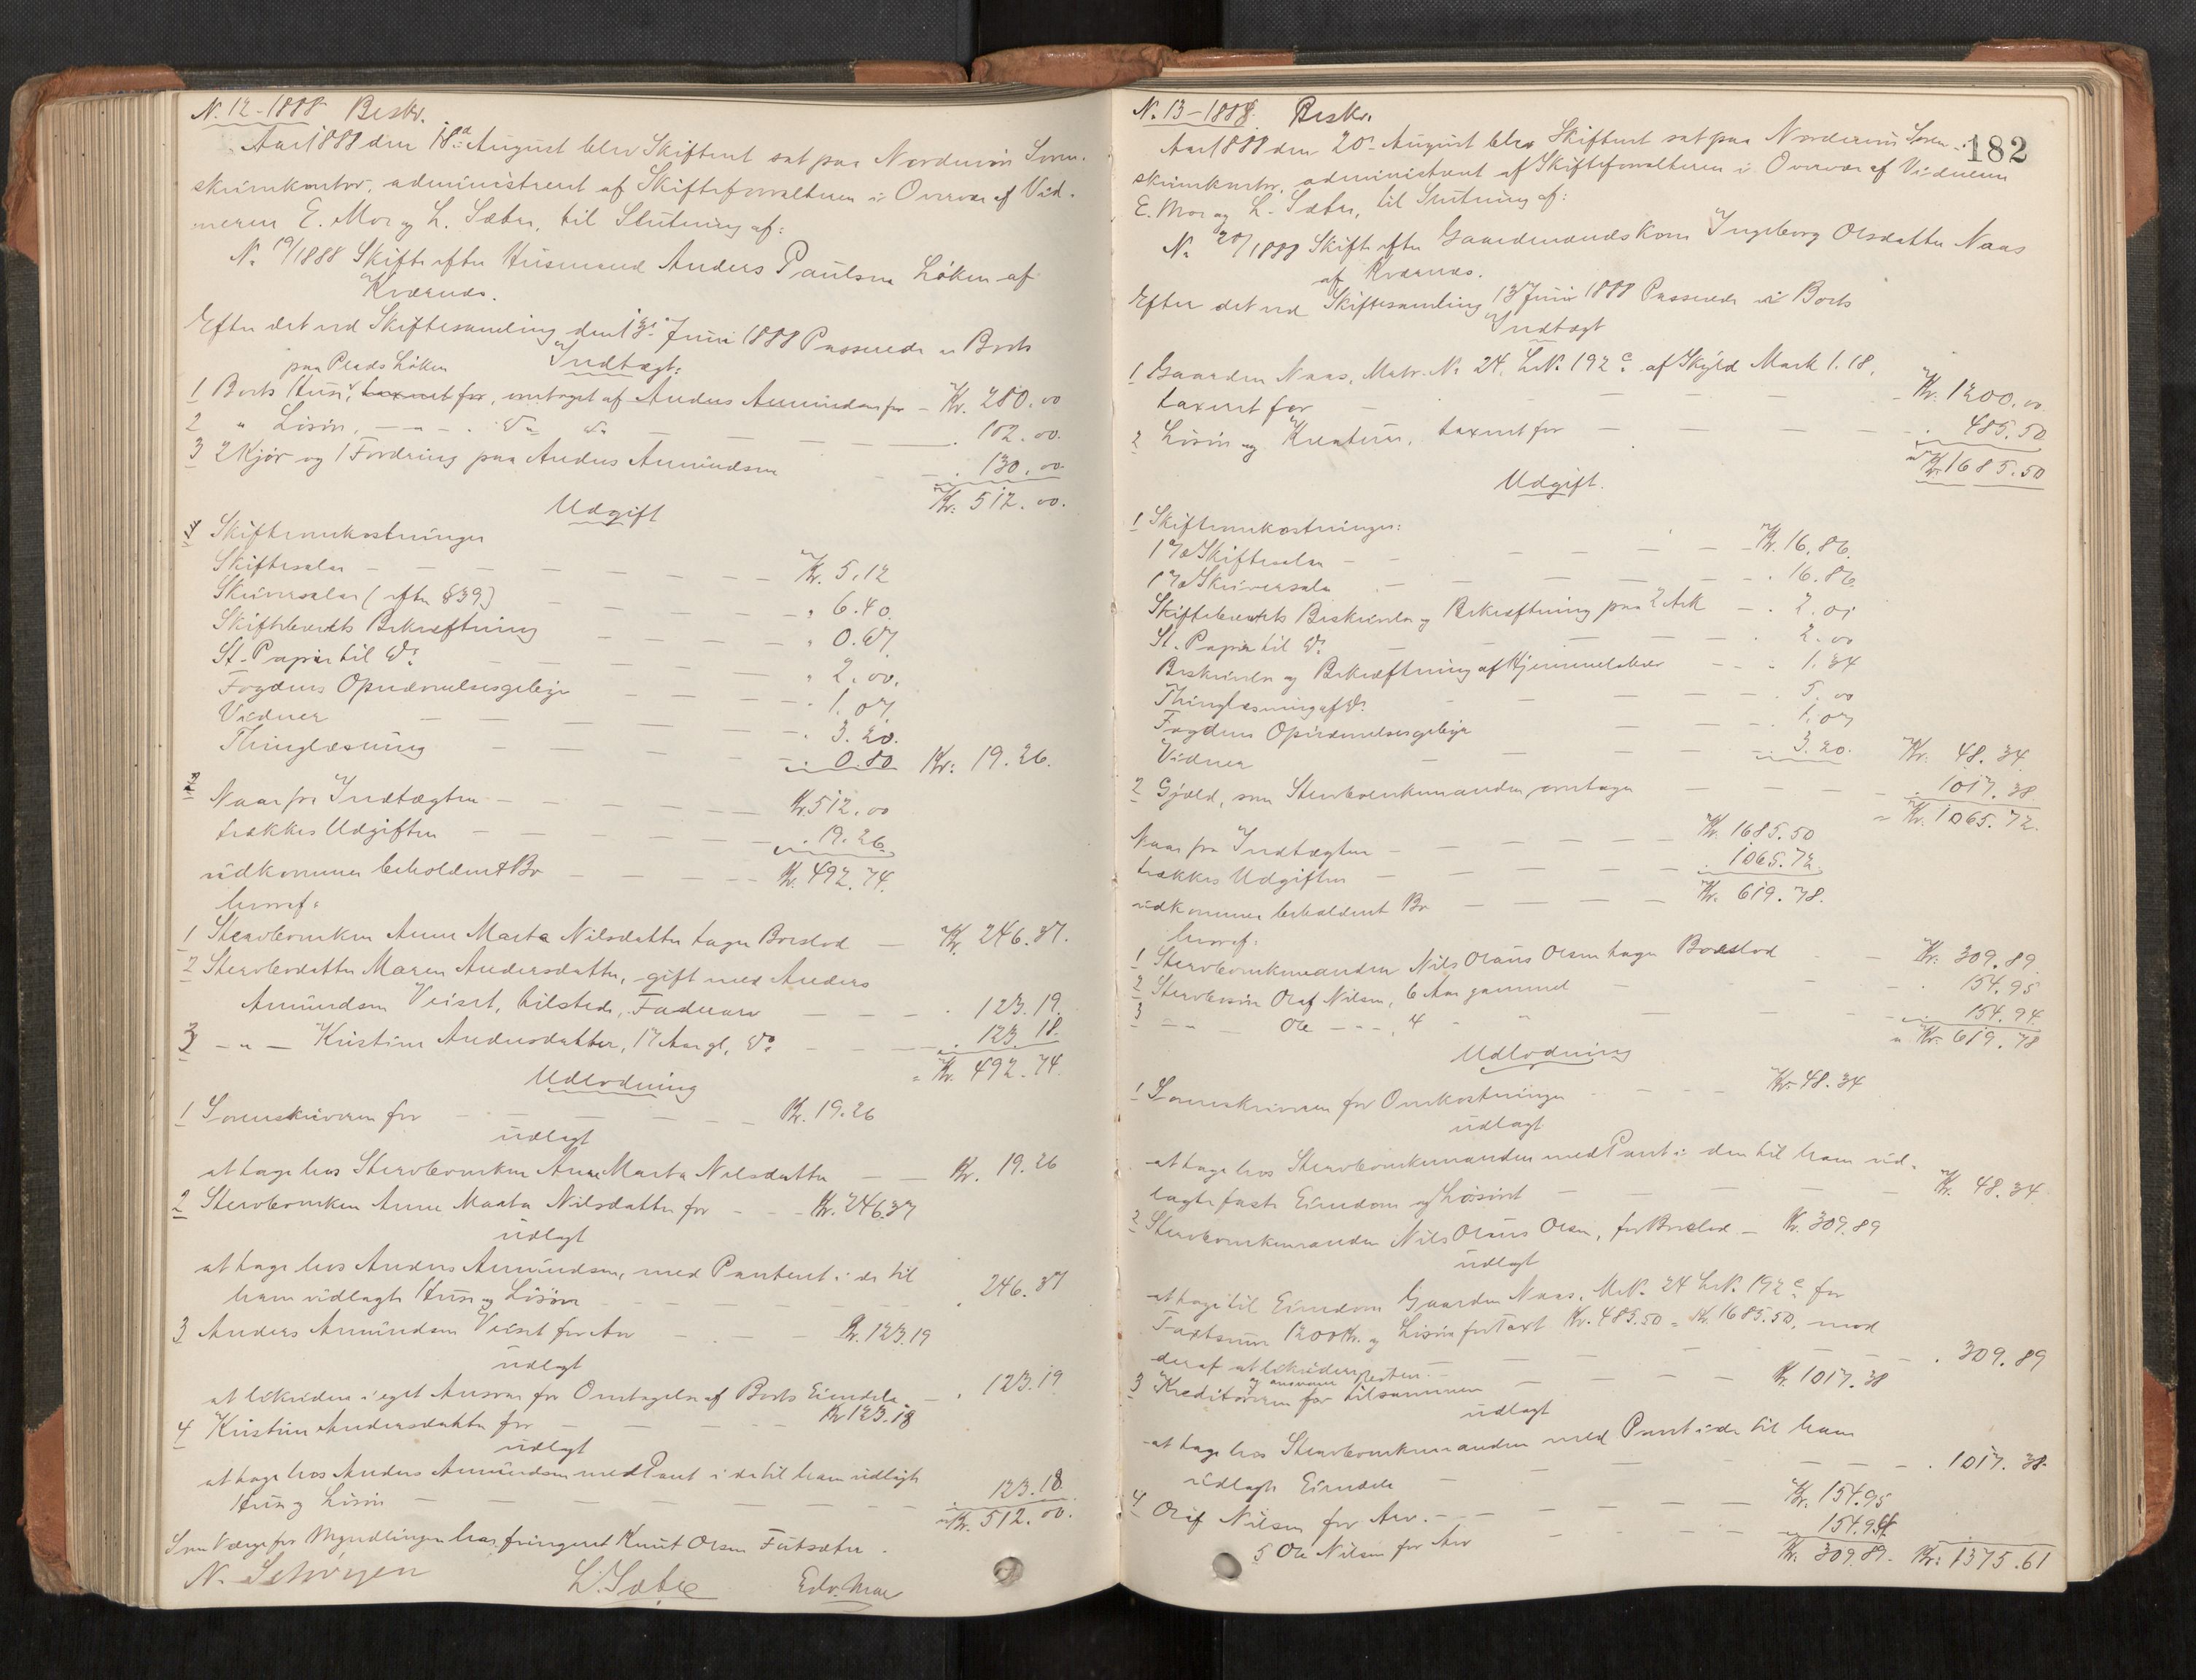 N. 12-1888 Beskr.
Aar 1888 den 18de August blev Skifteret sat paa Nordmøre Soren-
skriverkontor, administreret af Skifteforvalteren i Overvær af Vid-
nerne E. Moe og L. Sæbø, til Slutning af:
No 19/1888 Skifte efter Husmand Anders Paulsen Løken af
Kværnæs.
Efter det ved Skiftesamling den 13de Juni 1888 Passerede er Boets
Indtægt:
paa Plads Løken
1 Boets Huse, taxeret for, overtaget af Anders Amundsen for - Kr. 280.00
2 " Løsøre, - " - . Do Do - - - . 102.00.
3 2 Kjør og 1 Fordring paa Anders Amundsen - . 130.00
Kr. 512.00.
Udgift
1 Skifteomkostninger
Skiftesalær - - - Kr. 5.12
Skriversalær (efter §39) - - " 6.40.
Skiftebrevets Bekræftning - - " 0.67.
St. Papir til Do - - " 2.00.
Fogdens Opnævnelsesgebyr - - 1.07.
Vidner - - - . 3.20.
Thinglæsning - - . 0.80 Kr: 19.26.
2
Naar fra Indtægten - - - Kr. 512.00
trækkes Udgiften - - - . 19.26.
udkommer beholdent Bo - - - Kr. 492.74.
hvoraf:
1 Stervboenken Anne Marta Nilsdatter tager Boeslod - Kr. 246.37.
2 Stervbodatter Maren Andersdatter, gift med Anders
Amundsen Veiset, tilstede, Faderarv - - - . 123.19.
3 - " - Kristine Andersdatter, 17 Aar gl., Do - - . 123.18
= Kr. 492.74.
Udlodning
1 Sorenskriveren for - - - Kr. 19.26
udlagt
at tage hos Stervboenken Anne Marta Nilsdatter - - Kr. 19.26
2 Stervboenken Anne Marta Nilsdatter for - - - Kr. 246.37
udlagt
at tage hos Anders Amundsen, med Panteret i de til
ham udlagte Huse og Løsøre - - - . 246.37
3 Anders Amundsen Veiset for Arv - - - Kr. 123.19
udlagt
at likvidere i eget Ansvar for Overtagelse af Boets Eiendele - . 123.19
4 Kristine Andersdatter for - - - Kr 123.18
udlagt
at tage hos Anders Amundsen med Pant i de til ham udlagte
Huse og Løsøre - - - 123.18
= Kr. 512.00.
Som Værge for Myndlingen har fungeret Knut Olsen Futsæter.
L. Sæbø Edv. Moe
N. 13-1888. Beskr.
182
Aar 1888 den 20de August blev Skifteret sat paa Nordmøre Soren-
skriverkontor, administreret af Skifteforvalteren i Overvær af Vidnerne
E. Moe og L. Sæbø, til Slutning af:
No 20/1888 Skifte efter Gaardmandskone Ingeborg Olsdatter Naas
af Kværnæs.
Efter det ved Skiftesamling 13 Juni 1888 Passerede er Boets
Indtægt
1 Gaarden Naas, Matr. No 24. L.No 192c af Skyld Mark 1.18.
taxeret for - - - Kr. 1200.00
2 Løsøre og Kreaturer, taxeret for - - - . 485.50
= Kr. 1685.50
Udgift.
1 Skifteomkostninger:
1 % Skiftesalær - - - Kr. 16.86.
1 % Skriversalær - - - . 16.86
Skiftebrevets Beskrivelse og Bekræftning paa 2 Ark - . 2.01
St. Papir til Do - - - . 2.00
Beskrivelse og Bekræftning af Hjemmelsbrev - - - 1.34
Thinglæsning af Do - - - . 5.00
Fogdens Opnævnelsesgebyr - - - . 1.07
Vidner - - - . 3.20. Kr. 48.34
2 Gjæld, som Stervboenkemanden overtager - - - . 1017.38
= Kr. 1065.72.
Naar fra Indtægten - - - Kr. 1685.50
trækkes Udgiften - - - . 1065.72.
udkommer beholdent Bo - - - Kr. 619.78.
hvoraf:
1 Stervboenkemanden Nils Olaus Olsen tager Boeslod - Kr: 309.89.
2 Stervbosøn Olaf Nilsen, 6 Aar gammel - - . 154.95
3 - " - Ole - " - , 4 - " - - . 154.94.
= Kr. 619.78
Udlodning
1 Sorenskriveren for Omkostninger - - - Kr. 48.34
udlagt
at tage hos Stervboenkemanden med Pant i den til ham ud-
lagte faste Eiendom og Løsøret - - - Kr. 48.34
2 Stervboenkemanden Nils Olaus Olsen, for Boeslod - Kr. 309.89
udlagt
at tage til Eiendom Gaarden Naas, M.No 24 L.No 192c for
Taxtsum 1200 Kr. og Løsøre for Taxt Kr. 485.50 = Kr. 1685.50, mod
deraf at likvidere - - - . 309.89
og ansvare Resten.
3 Kreditorerne for tilsammen - - - Kr. 1017.38
udlagt
at tage hos Stervboenkemanden med Pant i de til ham
udlagte Eiendele - - - . 1017.38.
4 Olaf Nilsen for Arv. - - - Kr. 154.95
5 Ole Nilsen for Arv - - - 154.94
Kr. 309.89. Kr: 1375.61